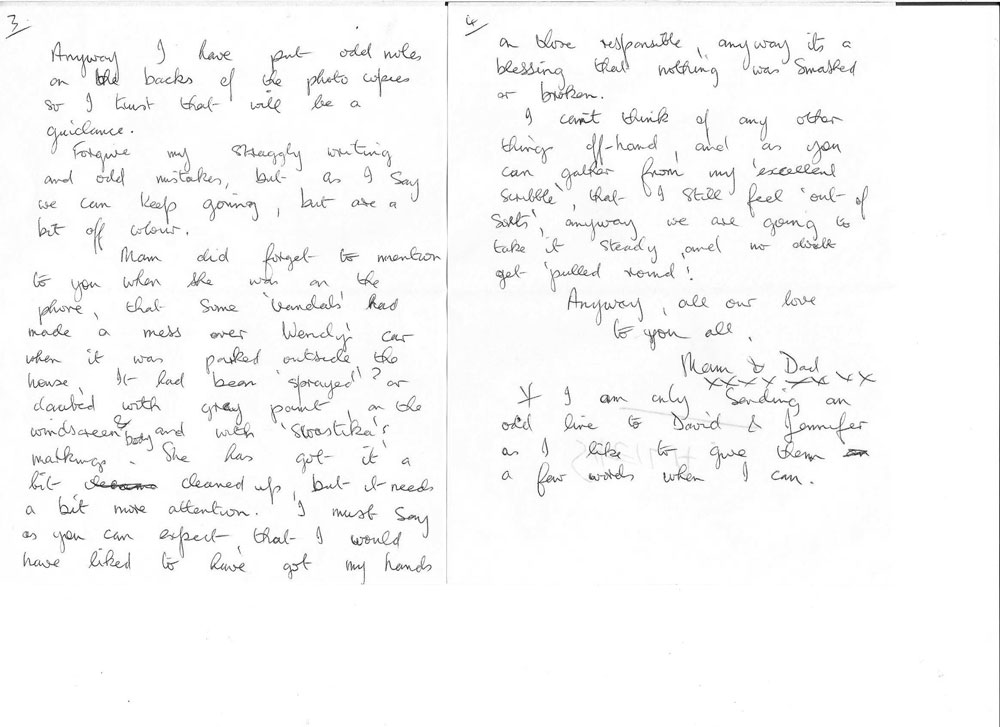 3
Anyway I have put odd notes
on the backs of the photo copies
so I trust that will be a
guidance.
Forgive my straggly writing
and odd mistakes, but as I say
we can keep going, but are a
bit off colour.
Mam did forget to mention
to you when she was on the
phone, that some 'vandals' had
made a mess over Wendy's car
when it was parked outside the
house, It had been 'sprayed'? or
daubed with grey paint, on the
windscreen & body and with 'Swastika's
markings. She has got it a
bit cleaned up, but it needs
a bit more attention. I must say
as you can expect, that I would
have liked to have got my hands
4
on those responsible, anyway its a
blessing that nothing was smashed
or broken.
I can't think of any other
things off-hand, and as you
can gather from my 'excellent
scribble', that I still feel 'out of
sorts', anyway we are going to
take it steady and no doubt
get 'pulled round'!
Anyway, all our love
to you all,
Mam & Dad
xxxx xx xx
I am only sending an
odd line to David & Jennifer
as I like to give them
a few words when I can.